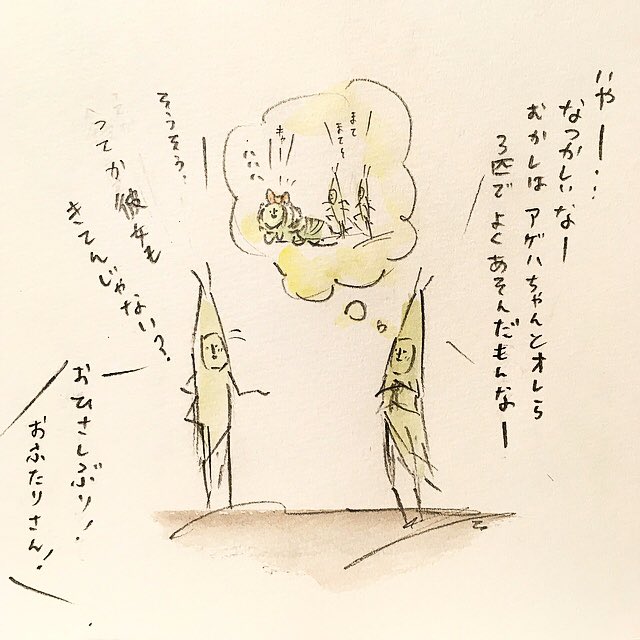 いやー…
なつかしいなー
むかしは アゲハちゃんとオレら
3匹で よく あそんだもんなー
まて
まてぇ
キャー
そうそう、
ってか 彼女も
きてんじゃない？
おひさしぶり！
おふたりさん！